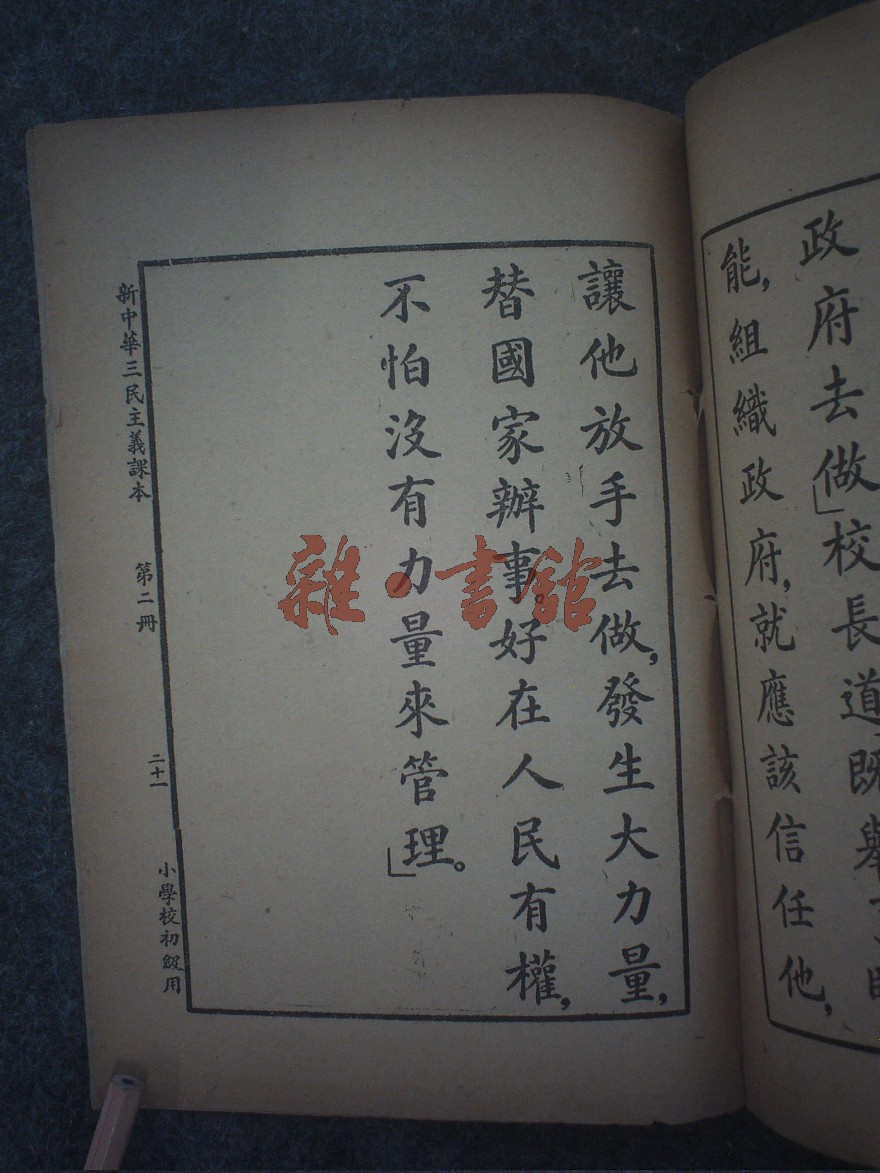 政府去做」校長道既舉
能，組織政府，就應該信任他，
讓他放手去做，發生大力量，
替國家辦事。好在人民有權，
不怕沒有力量來管理。」
新中華三民主義課本 第二冊 二十一 小學校初級用
雜·書館